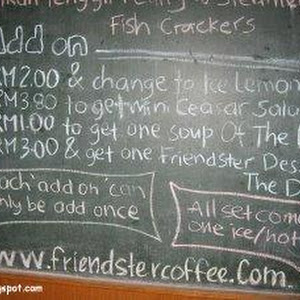 Fish Crackers
Add on
RM2.00 & change to Ice Lemon
RM3.80 to get mini Ceasar Sala
RM1.00 to get one soup Of The
RM3.00 & get one Friendster Des
The D
ach 'add on' can
nly be add once
All set come
one ice/hot
www.friendstercoffee.Com
spot.com